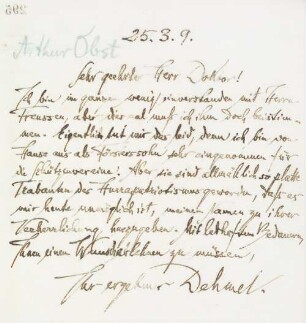 399
Arthur Obst
25. 3. 9.
Sehr geehrter Herr Doktor!
Ich bin im ganzen wenig einverstanden mit Herrn
Frenssen, aber diesmal muß ich ihm doch beistim-
men. Eigentlich tut mir das leid, denn ich bin von
Hause aus als Förstersohn sehr eingenommen für
die Schützenvereine. Aber sie sind allmählich so platte
Trabanten des Hurrapatriotismus geworden, daß es
mir heute unmöglich ist, meinen Namen zu ihrer
Verherrlichung herzugeben. Mit lebhaftem Bedauern,
Ihnen einen Wunsch abschlagen zu müssen,
Ihr ergebner Dehmel.